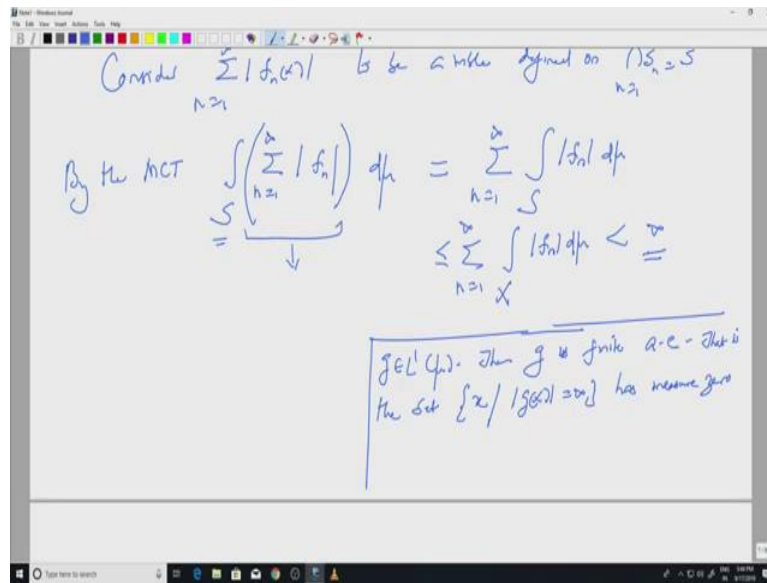 Note1 - Windows Journal
File Edit View Insert Actions Tools Help
Consider ∑_{n=1}^∞ |f_n(x)| to be a mble defined on ⋂_{n=1} S_n = S
By the MCT ∫_S (∑_{n=1}^∞ |f_n|) dμ = ∑_{n=1}^∞ ∫_S |f_n| dμ
≤ ∑_{n=1}^∞ ∫_X |f_n| dμ < ∞
g ∈ L¹(μ). Then g is finite a.e. That is
the set {x / |g(x)| = ∞} has measure zero
Type here to search
ENG